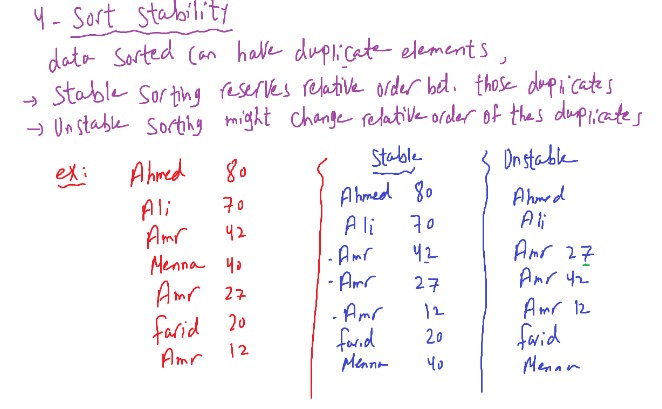 4- Sort Stability
data sorted can have duplicate elements,
→ Stable Sorting reserves relative order bet. those duplicates
→ Unstable Sorting might change relative order of thes duplicates
ex:
Ahmed 80
Ali 70
Amr 42
Menna 40
Amr 27
farid 20
Amr 12
Stable
Ahmed 80
Ali 70
- Amr 42
- Amr 27
- Amr 12
farid 20
Menna 40
Unstable
Ahmed
Ali
Amr 27
Amr 42
Amr 12
farid
Menna